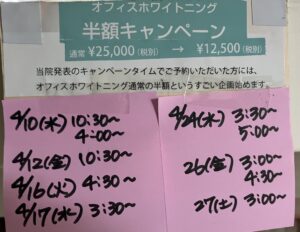 オフィスホワイトニング
半額キャンペーン
通常 ¥25,000(税別) → ¥12,500(税別)
当院発表のキャンペーンタイムでご予約いただいた方には、
オフィスホワイトニング通常の半額というすごい企画始めます。
4/10(水) 10:30~
4:00~
4/12(金) 10:30~
4/16(火) 4:30~
4/17(水) 3:30~
4/24(水) 3:30~
5:00~
26(金) 3:00~
4:30~
27(土) 3:00~